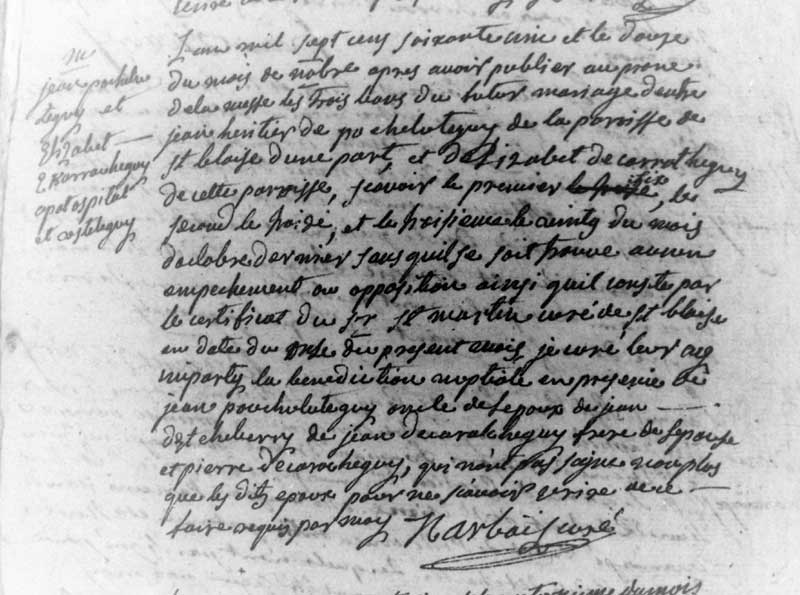 M
jean pochulu
teguy et
Elizabet
Ekarracheguy
apatospital
et costeteguy
L'an mil sept cens soixante une et le douze
du mois de nobre apres avoir publier au prone
de la messe les trois bans du futur mariage d'entre
jean heritier de pochuluteguy de la parroisse de
st blaise d'une part, et d'Elizabet de carracheguy
de cette parroisse, scavoir le premier le
second le et le troisieme le vingt du mois
d'octobre dernier sans qu'il se soit trouve aucun
empechement ou opposition ainsi qu'il conste par
le certificat du sr st martin curé de st blaise
en date du onse du present mois, je curé leur ay
imparty la benediction nuptiale en presence de
jean pouchuluteguy oncle de l'epoux de jean
d'etcheberry de jean decarracheguy frere de l'epouse
et pierre decaracheguy, qui n'ont pas signe non plus
que les ditz epoux pour ne scavoir ecrire de ce
faire requis par moy Narbais curé
du mois